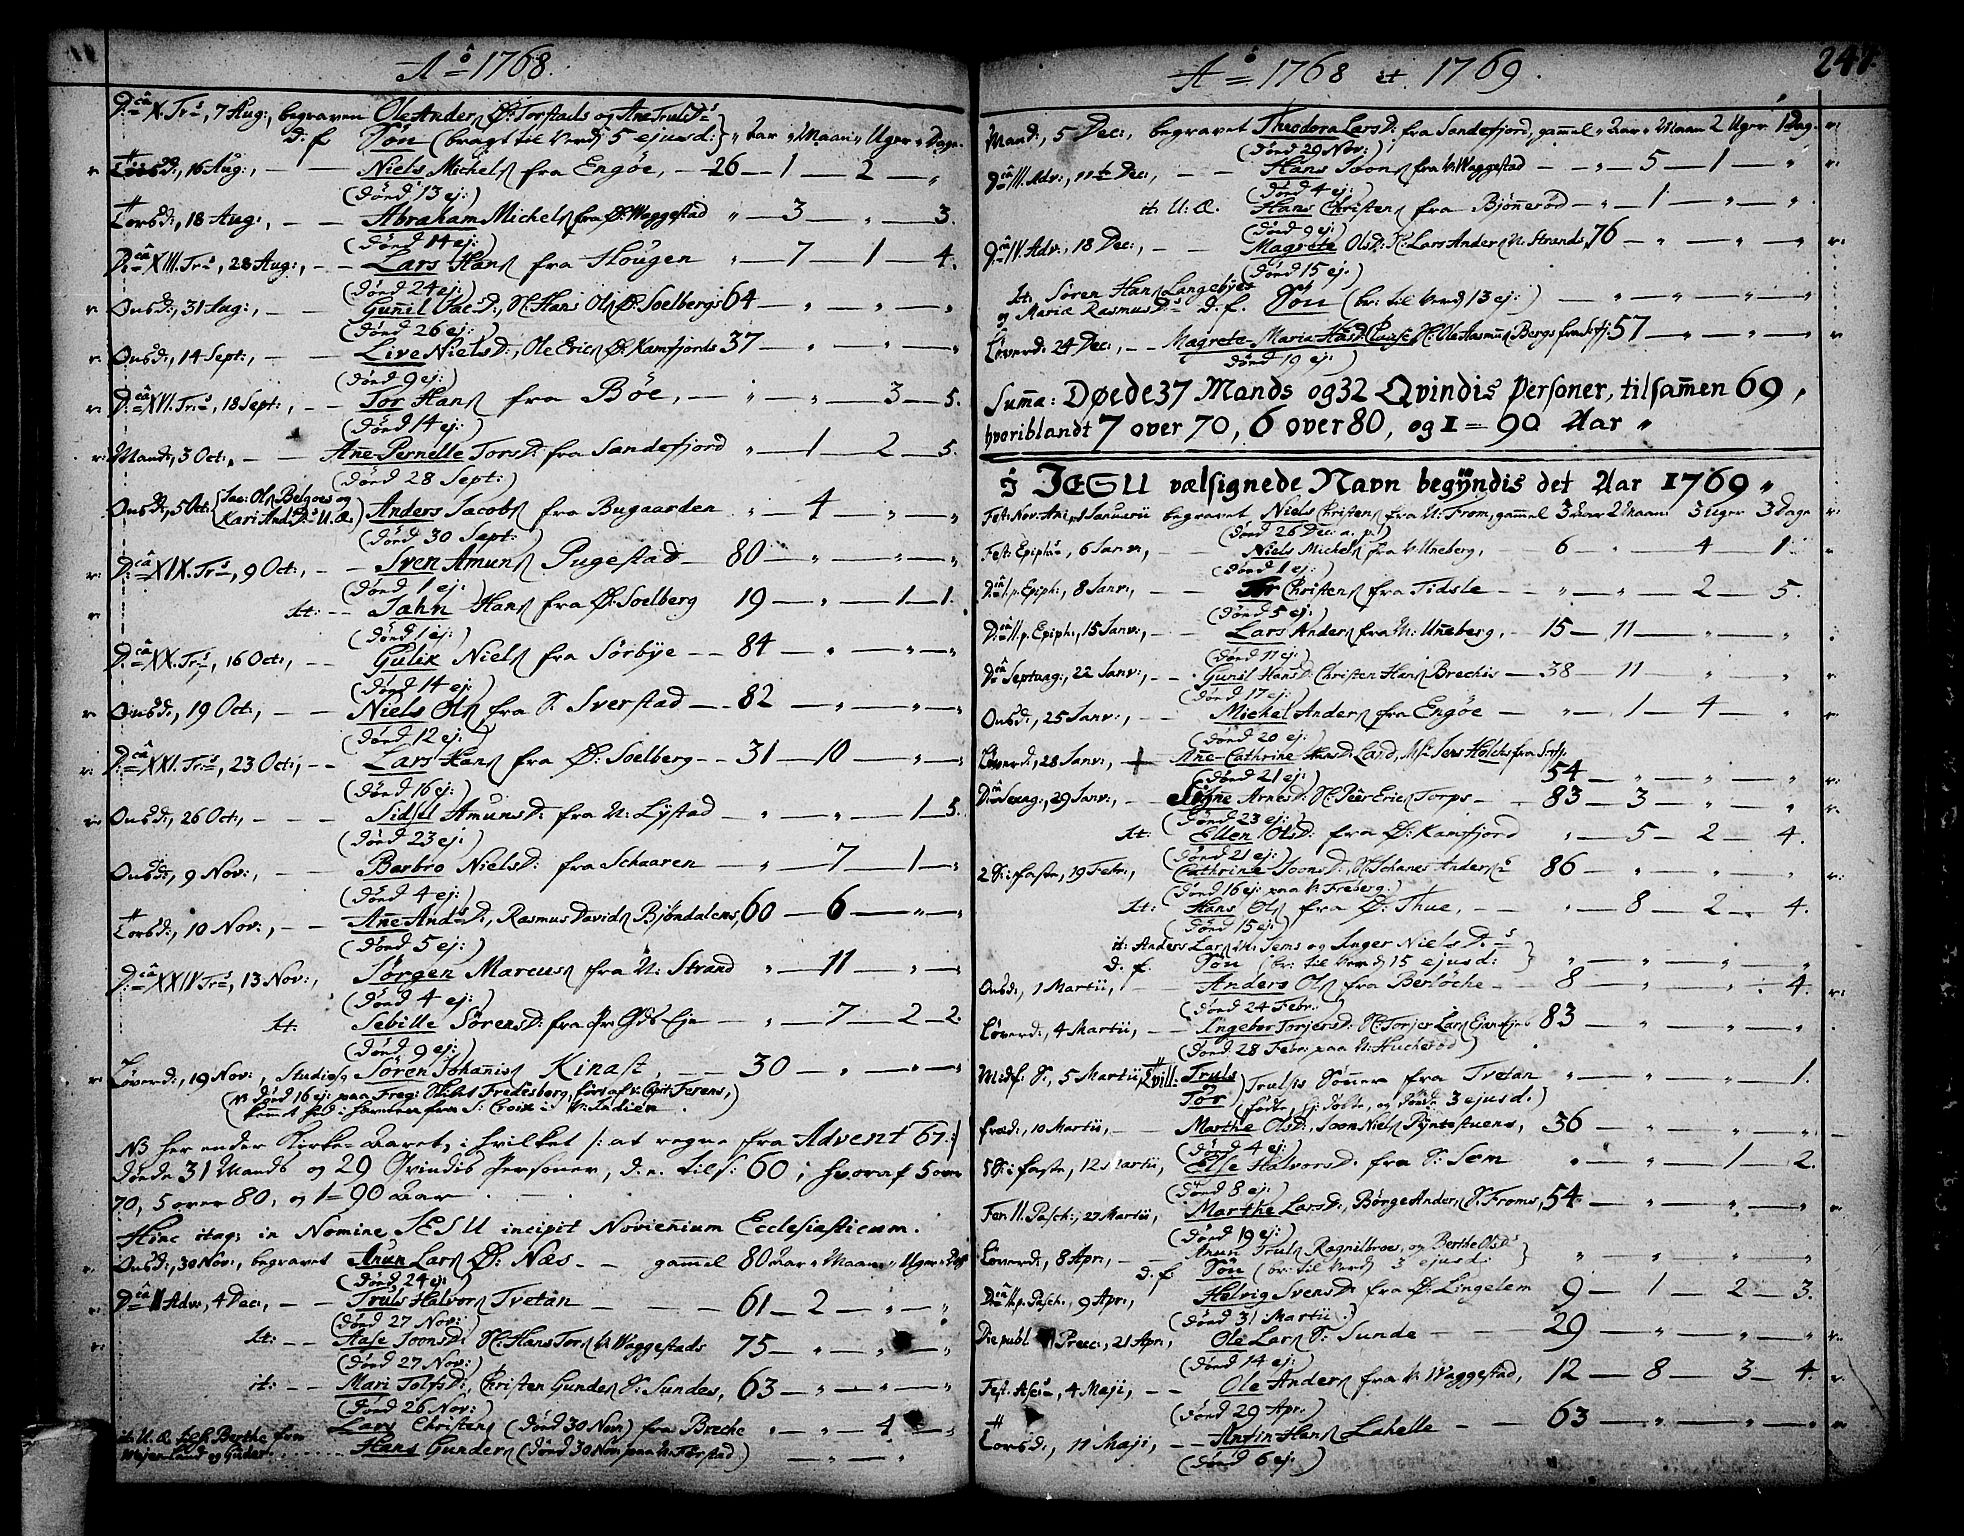 Aº 1768.
D:câ X. Tr:s, 7 Aug:, begraven Ole Anderß Ø: Torstads og Ane TrulsD:s
d. f. Søn (bragt til Verd 5 ejusd:) " Aar " Maan " Uger " Dage.
Tirsd:, 16 Aug:, — Niels Michelß fra Engøe, — 26 — 1 — 2 — "
(død 13 ej:)
Torsd:, 18 Aug:, — Abraham Michelß fra Ø: Waggestad " — 3 — " — 3.
(død 14 ej:)
D:câ XIII. Tr:s, 28 Aug:, — Lars Hanß fra Hougen " — 7 — 1 — 4.
(død 24 ej:)
Onsd:, 31 Aug:, — Gunil JacD:, S: Hans Olß Ø: Soelbergs 64 — " — " — "
(død 26 ej:)
Onsd:, 14 Sept:, — Live NielsD:, Ole Ericß Ø: Kamfjords 37 — " — " — "
(død 9 ej:)
D:câ XVI. Tr:s, 18 Sept:, — Tor Hanß fra Bøe, — " — " — 3 — 5.
(død 14 ej:)
Mand:, 3 Oct:, — Ane Pernelle TorsD: fra Sandefjord " — 1 — 2 — 5.
(død 28 Sept:)
Onsd:, 5 Oct: (Jac: Olß Belgoes og
Kari AndD:s U. Æ.) Anders Jacobß fra Bugaarden " — 4 — " — "
(død 30 Sept:)
D:câ XIX. Tr:s, 9 Oct:, — Sven Amunß Pugestad — 80 — " — " — "
(død 1 ej:)
it: — Jahn Hanß fra Ø: Soelberg 19 — " — 1 — 1.
(død 1 ej:)
D:câ XX. Tr:s, 16 Oct:, — Gulik Nielß fra Sørbye — 84 — " — " — "
(død 14 ej:)
Onsd:, 19 Oct:, — Niels Olß fra S: Sverstad — 82 — " — " — "
(død 12 ej:)
D:câ XXI. Tr:s, 23 Oct:, — Lars Hanß fra Ø: Soelberg — 31 — 10 — " — "
(død 16 ej:)
Onsd:, 26 Oct:, — Sidsel AmunsD: fra N: Lystad — " — " — 1 — 5.
(død 23 ej:)
Onsd:, 9 Nov:, — Barbro NielsD: fra Schaaren — " — 7 — 1 — "
(død 4 ej:)
Torsd:, 10 Nov:, — Ane AndsD:, Rasmus Davidß Bjøndalens, 60 — 6 — " — "
(død 5 ej:)
D:câ XXIV Tr:s, 13 Nov:, Jørgen Marcusß fra N: Strand " — 11 — " — "
(død 4 ej:)
it: Sebille SørensD: fra Pr: Gds Eje — " — 7 — 2 — 2.
(død 9 ej:)
Løverd:, 19 Nov:, Studios: Søren Johanisß Kinast, — 30 — " — " — "
NB her ender Kirke-Aaret, i hvilket /: at regne fra Advent 67:/
døde 31 Mands og 29 Qvindis Personer, d. e. tils: 60; hvoraf 5 over
70, 5 over 80, og 1 = 90 Aar —
Hinc itaq; in Nomine JESU incipit Novienium Ecclesiasticum.
Onsd:, 30 Nov:, begravet Anun Larß Ø: Næs — gammel 80 Aar " Maan " Uger " Dage
(død 24 ej:)
D:câ II Adv:, 4 Dec:, — Truls Halvorß Tvetân — 61 — 2 — " — "
(død 27 Nov:)
it: — Aase JoonsD: S: Hans Torß V: Waggestads 75 — " — " — "
(død 27 Nov:)
it: — Mari TolfsD:, Christen Gundeß S: Sundes, 63 — " — " — "
(død 26 Nov:)
Lars Christenß (død 30 Nov) fra Breche " — " — 4 — "
Hans Gunderß (død 30 Nov: paa N: Torstad) — " — "
Aº 1768 et 1769.
247.
Mand:, 5 Dec:, begravet Theodora LarsD: fra Sandefjord, gammel " Aar " Maan 2 Uger 1 Dag.
(død 29 Nov:)
D:câ III. Adv:, 11te Dec:, — Hans Joonß fra V: Waggestad — " — 5 — 1 — "
(død 4 ej:)
it: U: Æ. Hans Christenß fra Bjønnerød — " — 1 — " — "
(død 9 ej:)
D:câ IV. Adv:, 18 Dec:, — Magrete OlsD: S: Lars Anderß N: Strands, 76 — " — " — "
(død 15 ej:)
it: Søren Hanß Langebyes
og Maria RasmusD:s d. f. Søn (br: til Verd 13 ej:) — " — " — " — "
Løverd: 24 Dec:, — Magrete Maria HasD: S: Ole Rasmuß Bergs fra Sefj: 57 — " — " — "
(død 19 ej:)
Summa: Døede 37 Mands og 32 Qvindis Personer, tilsamen 69,
hvoriblandt 7 over 70, 6 over 80, og 1 = 90 Aar "
I JESU vælsignede Navn begyndis det Aar 1769 "
Fest: Nov: Ani, 1 Januarii begravet Niels Christenß fra N: From, gammel 3 Aar 2 Maan 3 Uger 3 Dage
(død 26 Dec: a. p:)
Fest: Epiph:, 6 Janv:, Niels Michelß fra V: Uneberg, — 6 — " — 4 — 1.
(død 1 ej:)
D:câ I. p. Epiph:, 8 Janv:, — Tor Christenß fra Tidsle — " — " — 2 — 5.
(død 5 ej:)
D:câ II. p. Epiph:, 15 Janv:, — Lars Anderß fra N: Uneberg, — 15 — 11 — " — "
(død 11 ej:)
D:câ Septuag:, 22 Janv:, — Gunil HansD: Christen Hanß Brechis — 38 — 11 — " — "
(død 17 ej:)
Onsd:, 25 Janv:, — Michel Anderß fra Engøe — " — 1 — 4 — "
(død 20 ej:)
Løverd:, 28 Janv:, — Ane Cathrine HansD: Land, Mr Jens Holchs fra Sefj:
(død 21 ej:) 54 — " — " — "
D:câ Sexag:, 29 Janv:, — Signe ArnesD: S: Peer Ericß Torps — 83 — 3 — " — "
(død 23 ej:)
it: Ellen OlsD: fra Ø: Kamfjord " — 5 — 2 — 4.
(død 21 ej:)
2 S: i faste, 19 Febr:, Cathrine JoonsD:, S: Johanes Anderß:s 86 — " — " — "
(død 16 ej: paa V: Freberg:)
it: Hans Olß fra Ø: Thue, — " — 8 — 2 — 4.
(død 15 ej:)
it: Anders Larß N: Sems og Inger NielsD:s
d. f. Søn (br: til Verd 15 ejusd:) " — " — " — "
Onsd:, 1 Martii, — Anders Olß fra Berløche — 8 — " — " — 4.
(død 24 Febr:)
Løverd:, 4 Martii, — Ingebor TorjersD: S: Torjer Larß 83 — " — " — "
(død 28 Febr: paa N: Hucherød)
Midf: S:, 5 Martii, Tvill: Truls
og
Tor) Trulsis Sønner fra Tvetân " — " — " — 1.
(fødte, hj: døbte, og døde 3 ejusd.)
Fred:, 10 Martii, — Marthe OlsD:, Joon Nielß Pyntestuens, 36 — " — " — "
(død 4 ej:)
5 S: i faste, 12 Martii, Else HalvorsD: fra S: Sem " — " — 1 — 2.
(død 8 ej:)
Fer: II. Pasch:, 27 Martii, Marthe LarsD:, Børge Anderß S: Froms, 54 — " — " — "
(død 19 ej:)
Løverd:, 8 Apr:, — Anun Trulß Ragnilbroes, og Berthe OlsD:s
d. f. Søn (br: til Verd 3 ejusd:) " — " — " — "
D:câ II. p. Pasch:, 9 Apr:, Helvig SvensD: fra Ø: Lingelem 9 — 1 — 2 — 3.
(død 31 Martii:)
Die publ: Prec:, 21 Apr:, Ole Larß S: Sunde — 29 — " — " — "
(død 14 ej:)
Fest: Asc:s, 4 Maji, — Ole Anderß fra V: Waggestad, 12 — 8 — 3 — 4.
(død 29 Apr:)
Torsd:, 11 Maji, — Antin Hanß Lahelle — 63 — " — " — "
(død 6 ej:)